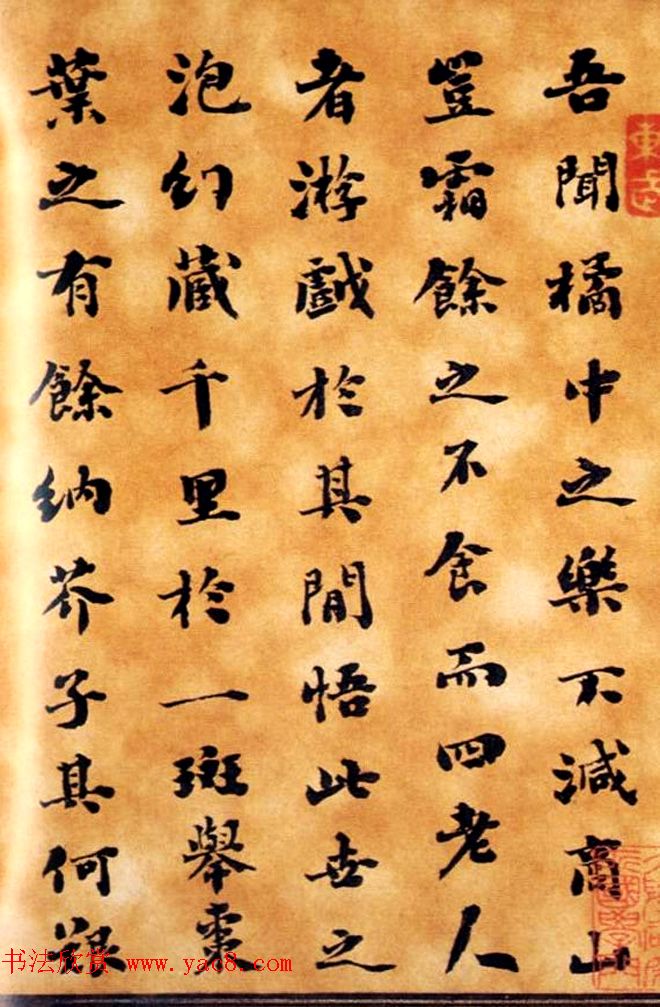 吾聞橘中之樂不減商山
豈霜餘之不食而四老人
者游戲於其間悟此世之
泡幻藏千里於一斑舉棗
葉之有餘納芥子其何艱
书法欣赏 www.yac8.com